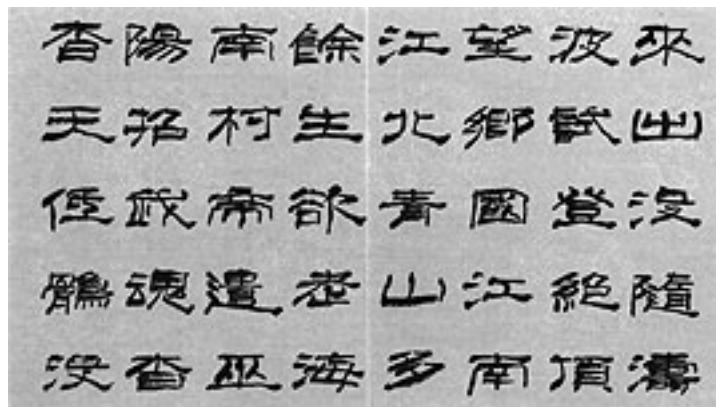 來出沒隨濤
波試登絕頂
望鄉國江南
江北青山多
餘生欲老海
南村帝遣巫
陽招我魂杳
杳天低鶻沒